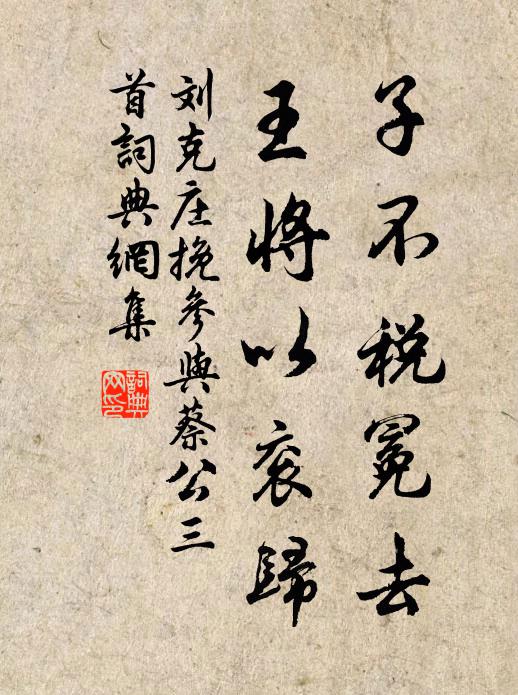 子不税冕去
王將以衮歸
刘克庄挽參與蔡公三
首詞典網集
詞典
网印